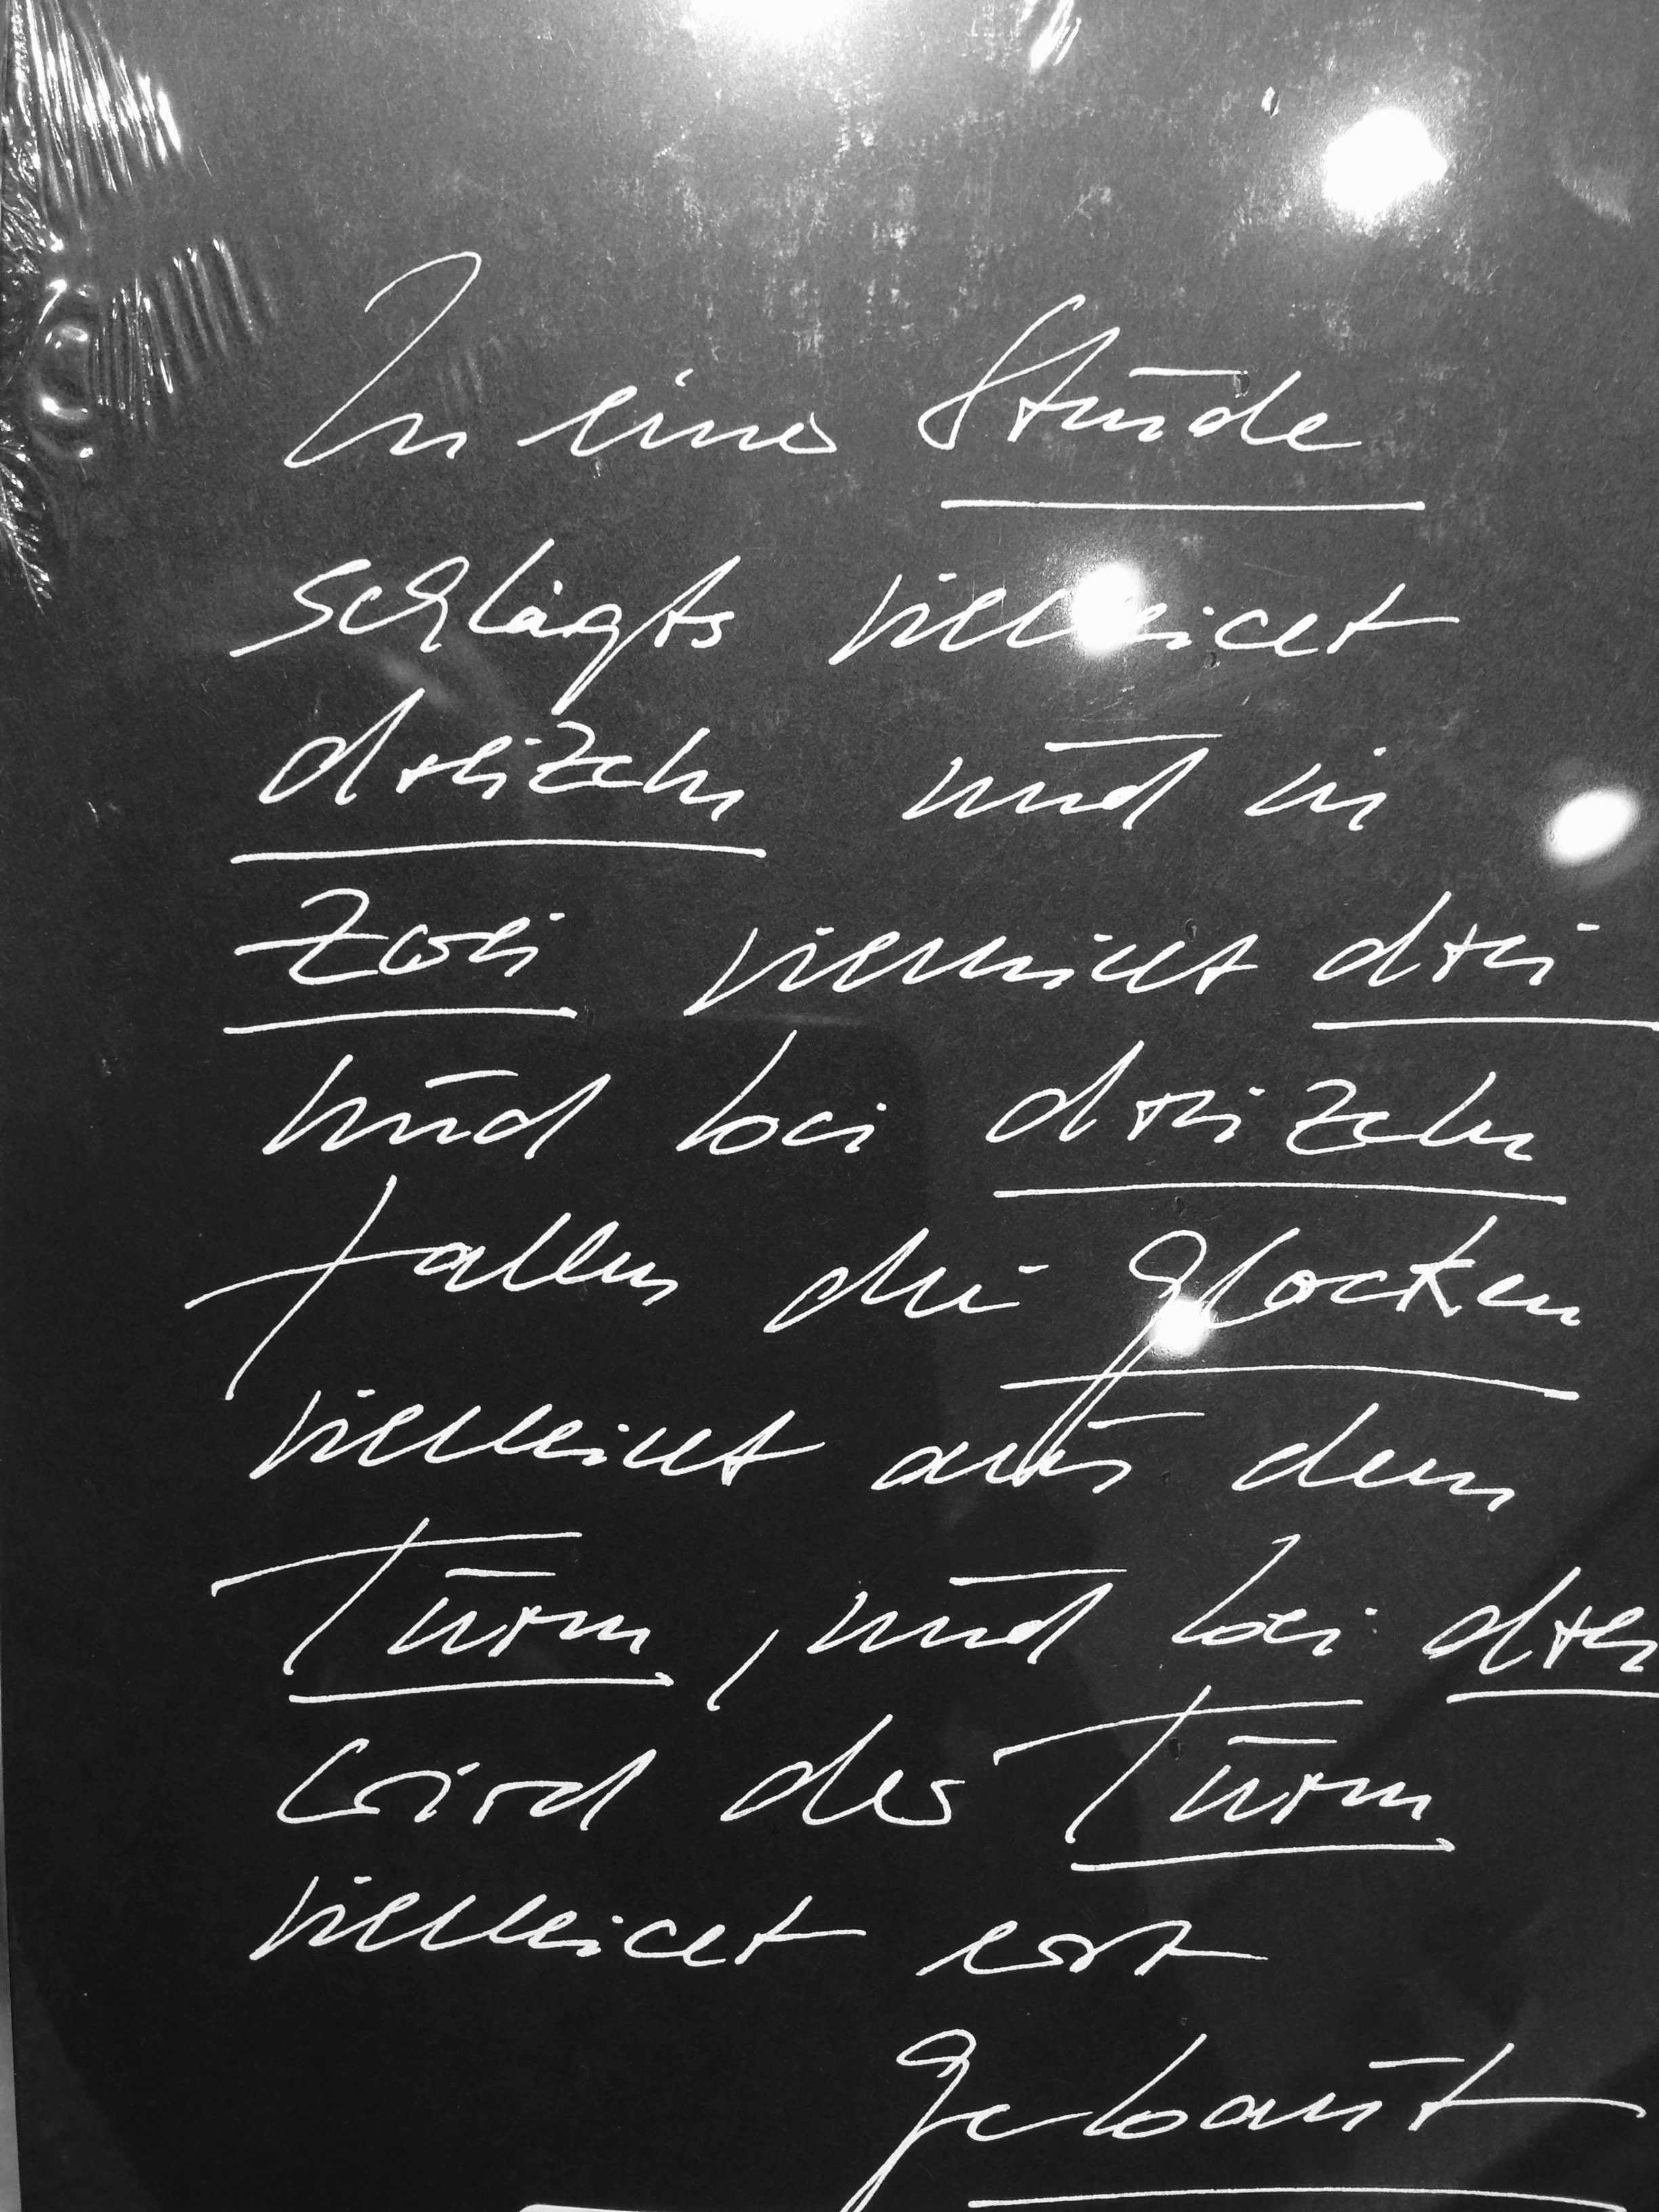 In einer Stunde
schlägts vielleicht
dreizehn und in
zwei vielleicht drei
und bei dreizehn
fallen die Glocken
vielleicht aus dem
Turm, und bei drei
wird der Turm
vielleicht erst
gebaut